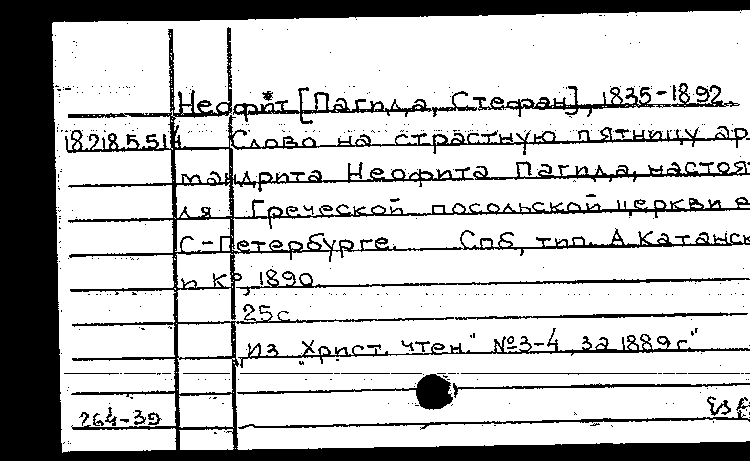 Неофит [Пагида, Стефан], 1835-1892.
18.218.5.514 Слово на страстную пятницу ар
мандрита Неофита Пагида, настоя
ля Греческой посольской церкви в
С.-Петербурге. Спб, тип. А. Катанск
и К°, 1890
25с
"Из "Христ. чтен." №3-4, за 1889 г."
264-39